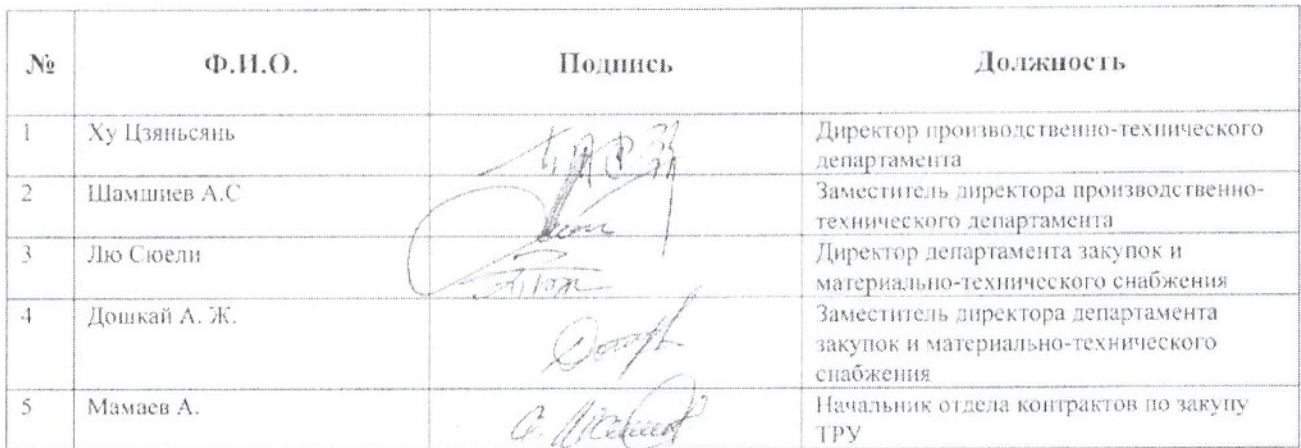 № Ф.И.О. Подпись Должность
1 Ху Цзяньсянь Директор производственно-технического
департамента
2 Шамшиев А.С Заместитель директора производственно-
технического департамента
3 Лю Сюели Директор департамента закупок и
материально-технического снабжения
4 Дошкай А. Ж. Заместитель директора департамента
закупок и материально-технического
снабжения
5 Мамаев А. Начальник отдела контрактов по закупу
ТРУ